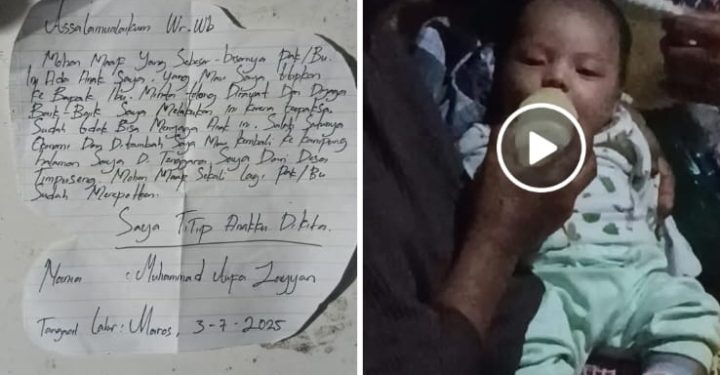 Assalamualaikum Wr. Wb
Mohon Maaf Yang Sebesar-besarnya Pak/Bu.
Ini Ada Anak Saya. Yang Mau Saya titipkan
Ke Bapak Ibu. Minta tolong Dirawat Dan Dijaga
Baik-Baik Saya Melakukan ini Karena terpaksa
Sudah tidak Bisa Menjaga Anak ini. Salah Satunya
Ekonomi Dan Ditambah Saya Mau Kembali Ke Kampung
halaman Saya Di Tenggara. Saya Dari Desa
Timpuseng. Mohon Maaf Sekali Lagi Pak/Bu
Sudah Merepotkan.
Saya Titip Anakku Dikita.
Nama : Muhammad
Tanggal Lahir : Maros, 3-7-2025